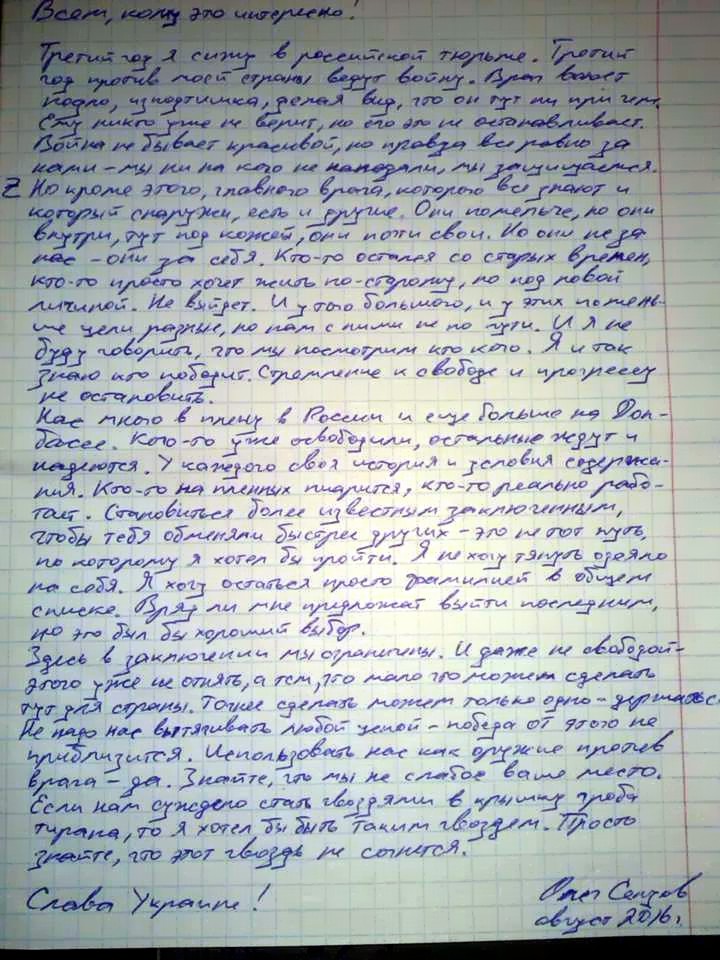 Всем, кому это интересно!
Третий год я сижу в российской тюрьме. Третий
год против моей страны ведут войну. Враг воюет
подло, исподтишка, делая вид, что он тут ни при чем.
Ему никто уже не верит, но его это не останавливает.
Война не бывает красивой, но правда все равно за
нами – мы ни на кого не нападали, мы защищаемся.
Z Но кроме этого, главного врага, которого все знают и
который снаружи, есть и другие. Они помельче, но они
внутри, тут под кожей, они почти свои. Но они не за
нас – они за себя. Кто-то остался со старых времен,
кто-то просто хочет жить по-старому, но под новой
личиной. Не выйдет. И у того большого, и у этих помень-
ше цели разные, но нам с ними не по пути. И я не
буду говорить, что мы посмотрим кто кого. Я и так
знаю кто победит. Стремление к свободе и прогрессу
не остановить.
Нас много в плену в России и еще больше на Дон-
бассе. Кого-то уже освободили, остальные ждут и
надеются. У каждого своя история и условия содержа-
ния. Кто-то на пленных пиарится, кто-то реально рабо-
тает. Становиться более известным заключенным,
чтобы тебя обменяли быстрее других – это не тот путь,
по которому я хотел бы пройти. Я не хочу тянуть одеяло
на себя. Я хочу остаться просто фамилией в общем
списке. Вряд ли мне предложат выйти последним,
но это был бы хороший выбор.
Здесь в заключении мы ограничены. И даже не свободой –
этого уже не отнять, а тем, что мало что можем сделать
тут для страны. Точнее сделать можем только одно – держаться.
Не надо нас вытягивать любой ценой – победа от этого не
приблизится. Использовать нас как оружие против
врага – да. Знайте, что мы не слабое ваше место.
Если нам суждено стать гвоздями в крышку гроба
тирана, то я хотел бы быть таким гвоздем. Просто
знайте, что этот гвоздь не согнется.
Слава Украине!
Олег Сенцов
август 2016 г.